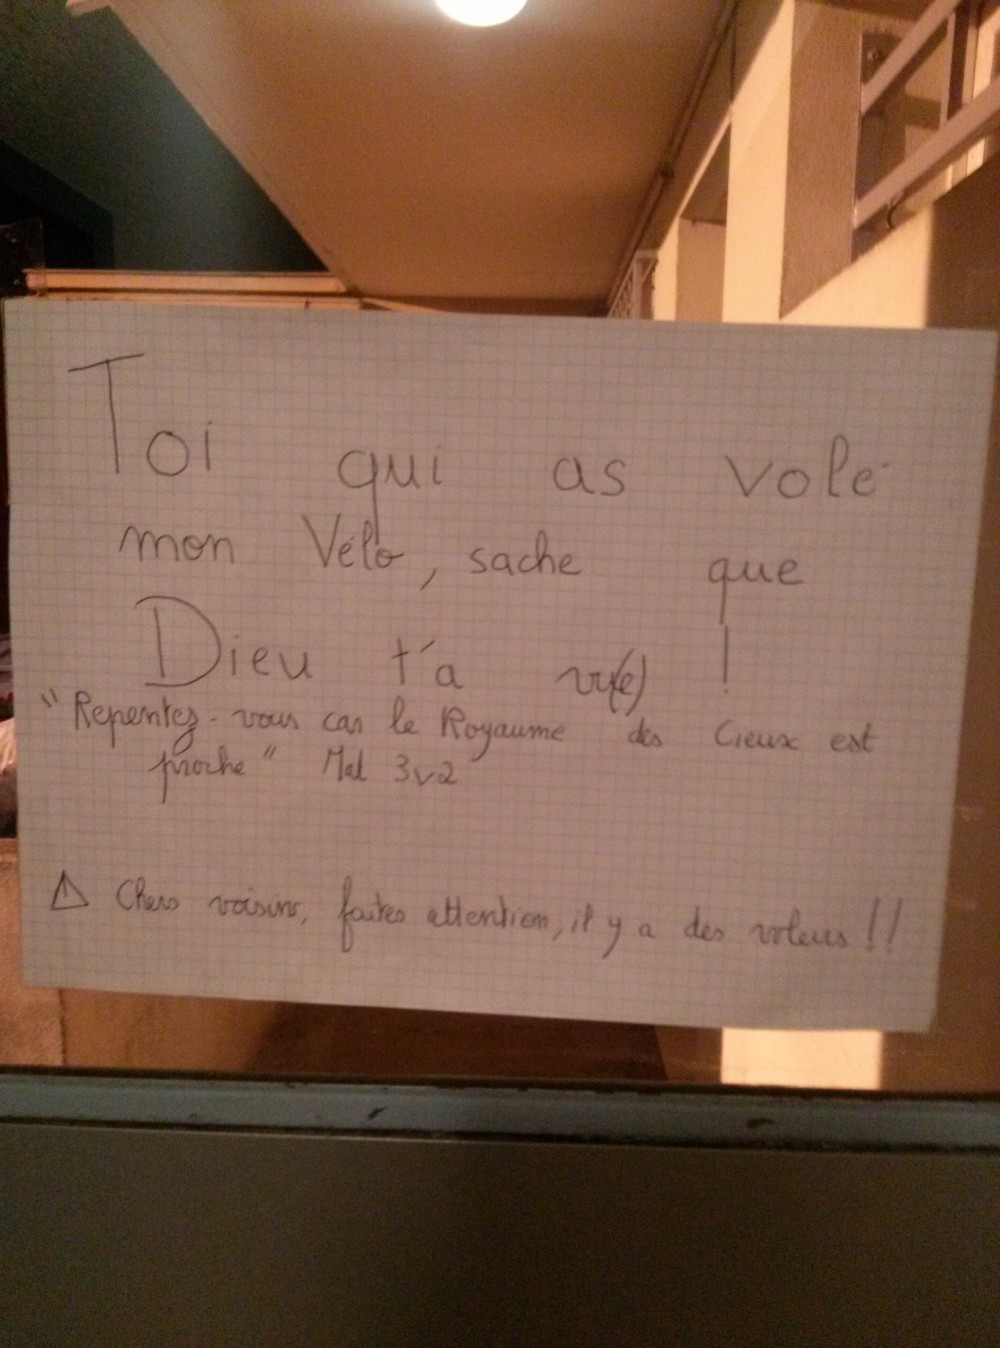 Toi qui as volé
mon Vélo, sache que
Dieu t'a vu(e) !
"Repentez-vous car le Royaume des Cieux est
proche" Mat 3v2
⚠ Chers voisins, faites attention, il y a des voleurs !!